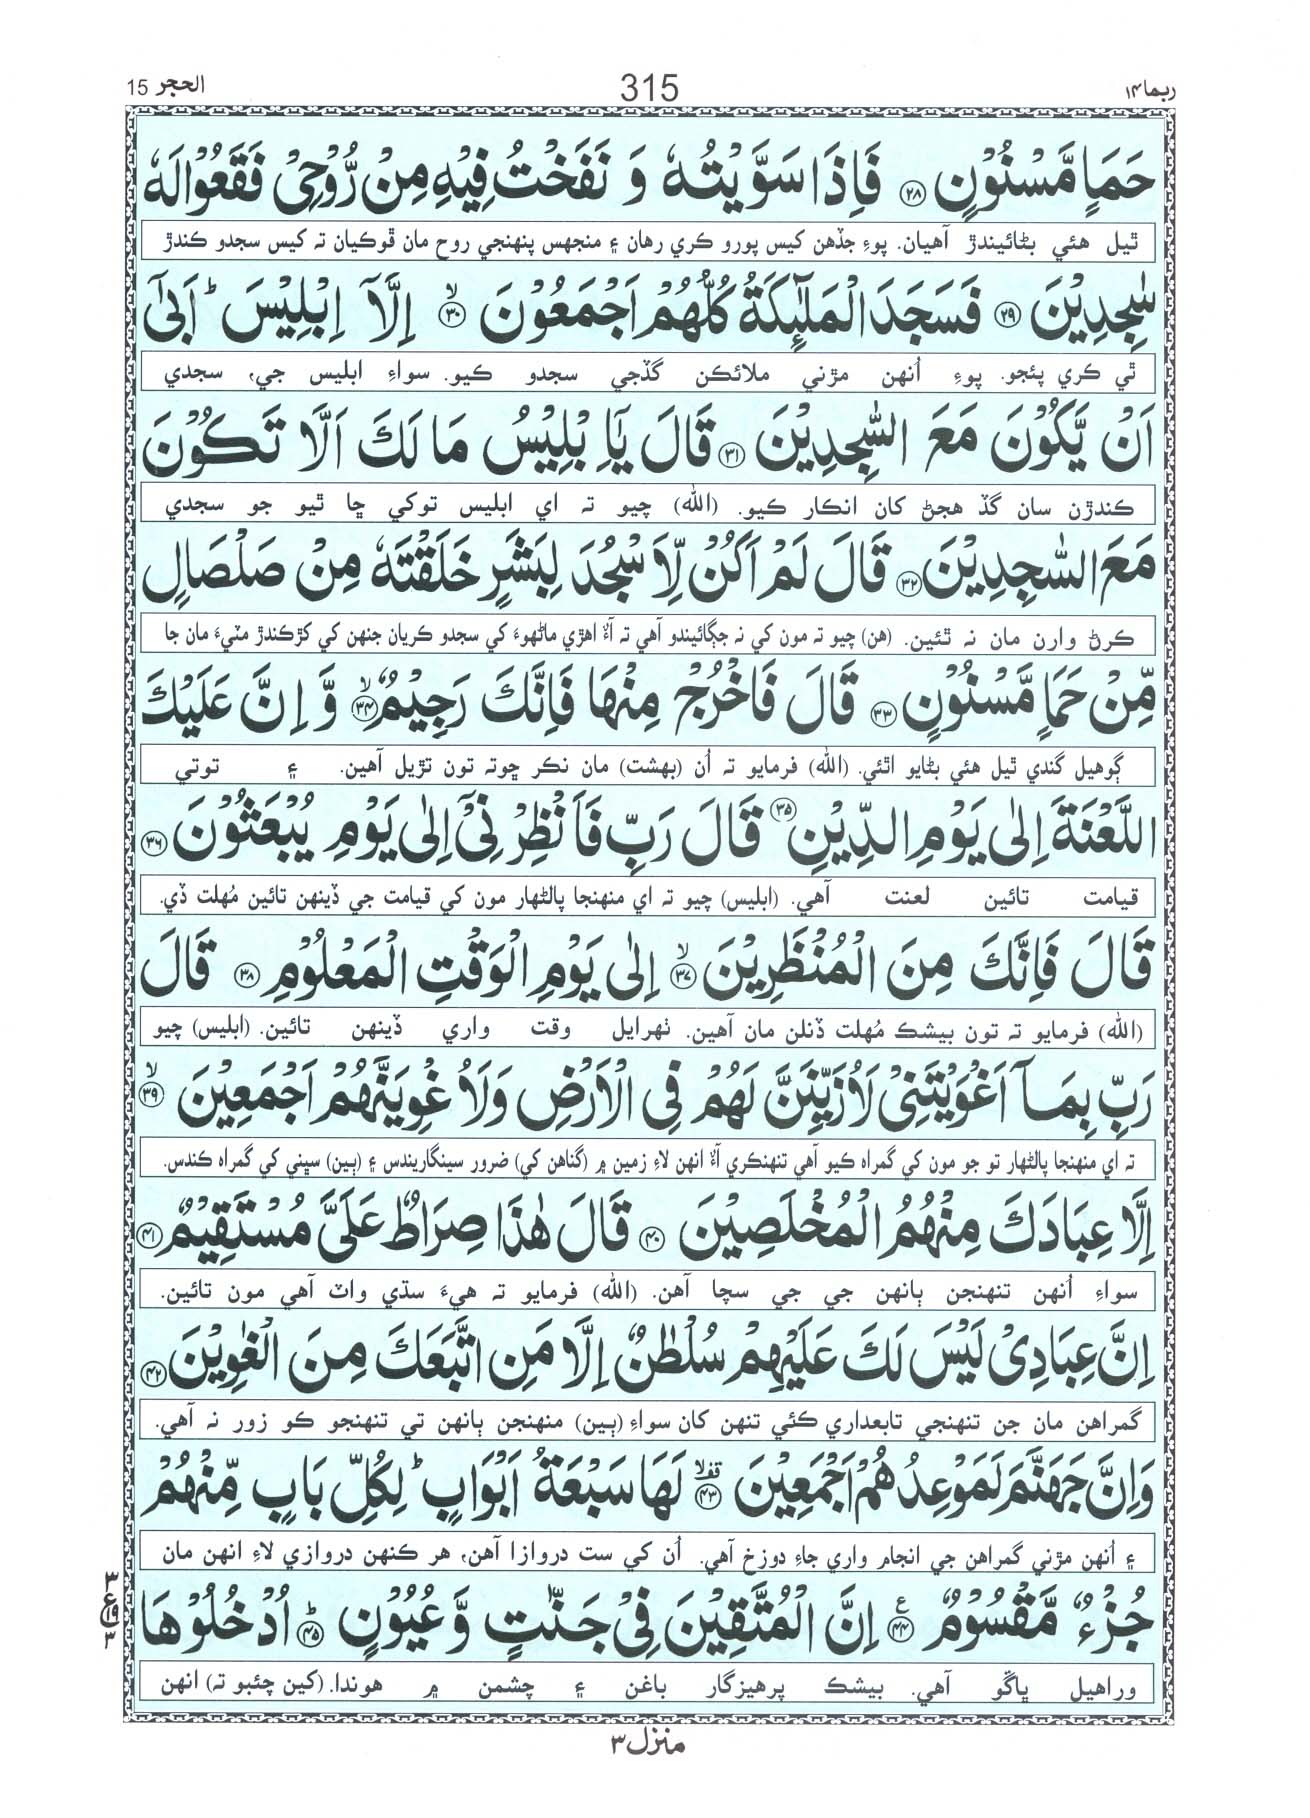 ربما ۱۴
315
الحجر 15
حَمَاٍ مَّسْنُوْنٍ ﴿۲۸﴾ فَاِذَا سَوَّيْتُهٗ وَ نَفَخْتُ فِيْهِ مِنْ رُّوْحِيْ فَقَعُوْا لَهٗ
ٿيل هئي بڻائيندڙ آهيان. پوءِ جڏهن کيس پورو ڪري رهان ۽ منجهس پنهنجي روح مان ڦوڪيان ته کيس سجدو ڪندڙ
سٰجِدِيْنَ ﴿۲۹﴾ فَسَجَدَ الْمَلٰٓئِكَةُ كُلُّهُمْ اَجْمَعُوْنَ ﴿۳۰﴾ۙ اِلَّاۤ اِبْلِيْسَ ؕ اَبٰۤى
ٿي ڪري پئجو. پوءِ اُنهن مڙني ملائڪن گڏجي سجدو ڪيو. سواءِ ابليس جي، سجدي
اَنْ يَّكُوْنَ مَعَ السّٰجِدِيْنَ ﴿۳۱﴾ قَالَ يٰۤاِبْلِيْسُ مَا لَكَ اَلَّا تَكُوْنَ
ڪندڙن سان گڏ هجڻ کان انڪار ڪيو. (الله) چيو ته اي ابليس توکي ڇا ٿيو جو سجدي
مَعَ السّٰجِدِيْنَ ﴿۳۲﴾ قَالَ لَمْ اَكُنْ لِّاَسْجُدَ لِبَشَرٍ خَلَقْتَهٗ مِنْ صَلْصَالٍ
ڪرڻ وارن مان نه ٿئين. (هن) چيو ته مون کي نه جڳائيندو آهي ته آءٌ اهڙي ماڻهوءَ کي سجدو ڪريان جنهن کي کڙڪندڙ مٽيءَ مان جا
مِّنْ حَمَاٍ مَّسْنُوْنٍ ﴿۳۳﴾ قَالَ فَاخْرُجْ مِنْهَا فَاِنَّكَ رَجِيْمٌ ﴿۳۴﴾ۙ وَّ اِنَّ عَلَيْكَ
ڳوهيل گندي ٿيل هئي بڻايو اٿئي. (الله) فرمايو ته اُن (بهشت) مان نڪر ڇوته تون تڙيل آهين. ۽ توتي
اللَّعْنَةَ اِلٰى يَوْمِ الدِّيْنِ ﴿۳۵﴾ قَالَ رَبِّ فَاَنْظِرْنِيْۤ اِلٰى يَوْمِ يُبْعَثُوْنَ ﴿۳۶﴾
قيامت تائين لعنت آهي. (ابليس) چيو ته اي منهنجا پالڻهار مون کي قيامت جي ڏينهن تائين مُهلت ڏي.
قَالَ فَاِنَّكَ مِنَ الْمُنْظَرِيْنَ ﴿۳۷﴾ۙ اِلٰى يَوْمِ الْوَقْتِ الْمَعْلُوْمِ ﴿۳۸﴾ قَالَ
(الله) فرمايو ته تون بيشڪ مُهلت ڏنلن مان آهين. ٺهرايل وقت واري ڏينهن تائين. (ابليس) چيو
رَبِّ بِمَاۤ اَغْوَيْتَنِيْ لَاُزَيِّنَنَّ لَهُمْ فِي الْاَرْضِ وَلَاُغْوِيَنَّهُمْ اَجْمَعِيْنَ ﴿۳۹﴾ۙ
ته اي منهنجا پالڻهار تو جو مون کي گمراه ڪيو آهي تنهنڪري آءٌ انهن لاءِ زمين ۾ (گناهن کي) ضرور سينگاريندس ۽ (ٻين) سڀني کي گمراه ڪندس.
اِلَّا عِبَادَكَ مِنْهُمُ الْمُخْلَصِيْنَ ﴿۴۰﴾ قَالَ هٰذَا صِرَاطٌ عَلَيَّ مُسْتَقِيْمٌ ﴿۴۱﴾
سواءِ اُنهن تنهنجن ٻانهن جي جي سچا آهن. (الله) فرمايو ته هيءَ سڌي واٽ آهي مون تائين.
اِنَّ عِبَادِيْ لَيْسَ لَكَ عَلَيْهِمْ سُلْطٰنٌ اِلَّا مَنِ اتَّبَعَكَ مِنَ الْغٰوِيْنَ ﴿۴۲﴾
گمراهن مان جن تنهنجي تابعداري ڪئي تنهن کان سواءِ (ٻين) منهنجن ٻانهن تي تنهنجو ڪو زور نه آهي.
وَاِنَّ جَهَنَّمَ لَمَوْعِدُهُمْ اَجْمَعِيْنَ ﴿۴۳﴾ لَهَا سَبْعَةُ اَبْوَابٍ ؕ لِكُلِّ بَابٍ مِّنْهُمْ
۽ اُنهن مڙني گمراهن جي انجام واري جاءِ دوزخ آهي. اُن کي ست دروازا آهن، هر ڪنهن دروازي لاءِ انهن مان
جُزْءٌ مَّقْسُوْمٌ ﴿۴۴﴾ اِنَّ الْمُتَّقِيْنَ فِيْ جَنّٰتٍ وَّعُيُوْنٍ ﴿۴۵﴾ؕ اُدْخُلُوْهَا
ع ۳ ۳
وراهيل ڀاڱو آهي. بيشڪ پرهيزگار باغن ۽ چشمن ۾ هوندا. (کين چئبو ته) انهن
منزل ۳